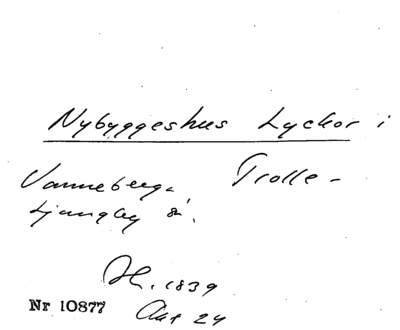 Nybyggeshus Lyckor i
Vanneberga, Trolle-
Ljungby sn.
Th. 1839
Nr 10877 Akt 24